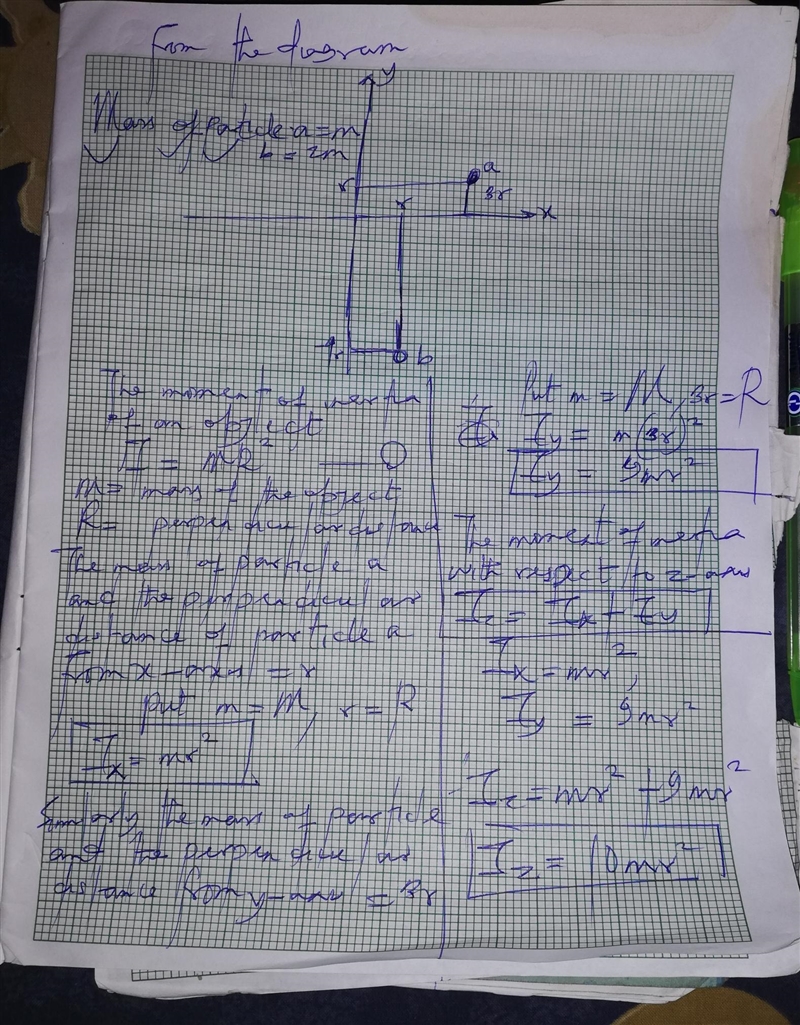 From the diagram
Mass of particle a = m
b = 2m
y
a
r
3r
r
x
-4r
b
The moment of inertia
of an object
I = MR² —— ①
M = mass of the object
R = perpendicular distance
The mass of particle a
and the perpendicular
distance of particle a
from x-axis = r
Put m = M, r = R
Ix = mr²
Similarly the mass of particle
and the perpendicular
distance from y-axis = 3r
Put m = M, 3r = R
Iy = m(3r)²
Iy = 9mr²
The moment of inertia
with respect to z-axis
Iz = Ix + Iy
Ix = mr²,
Iy = 9mr²
Iz = mr² + 9mr²
Iz = 10mr²